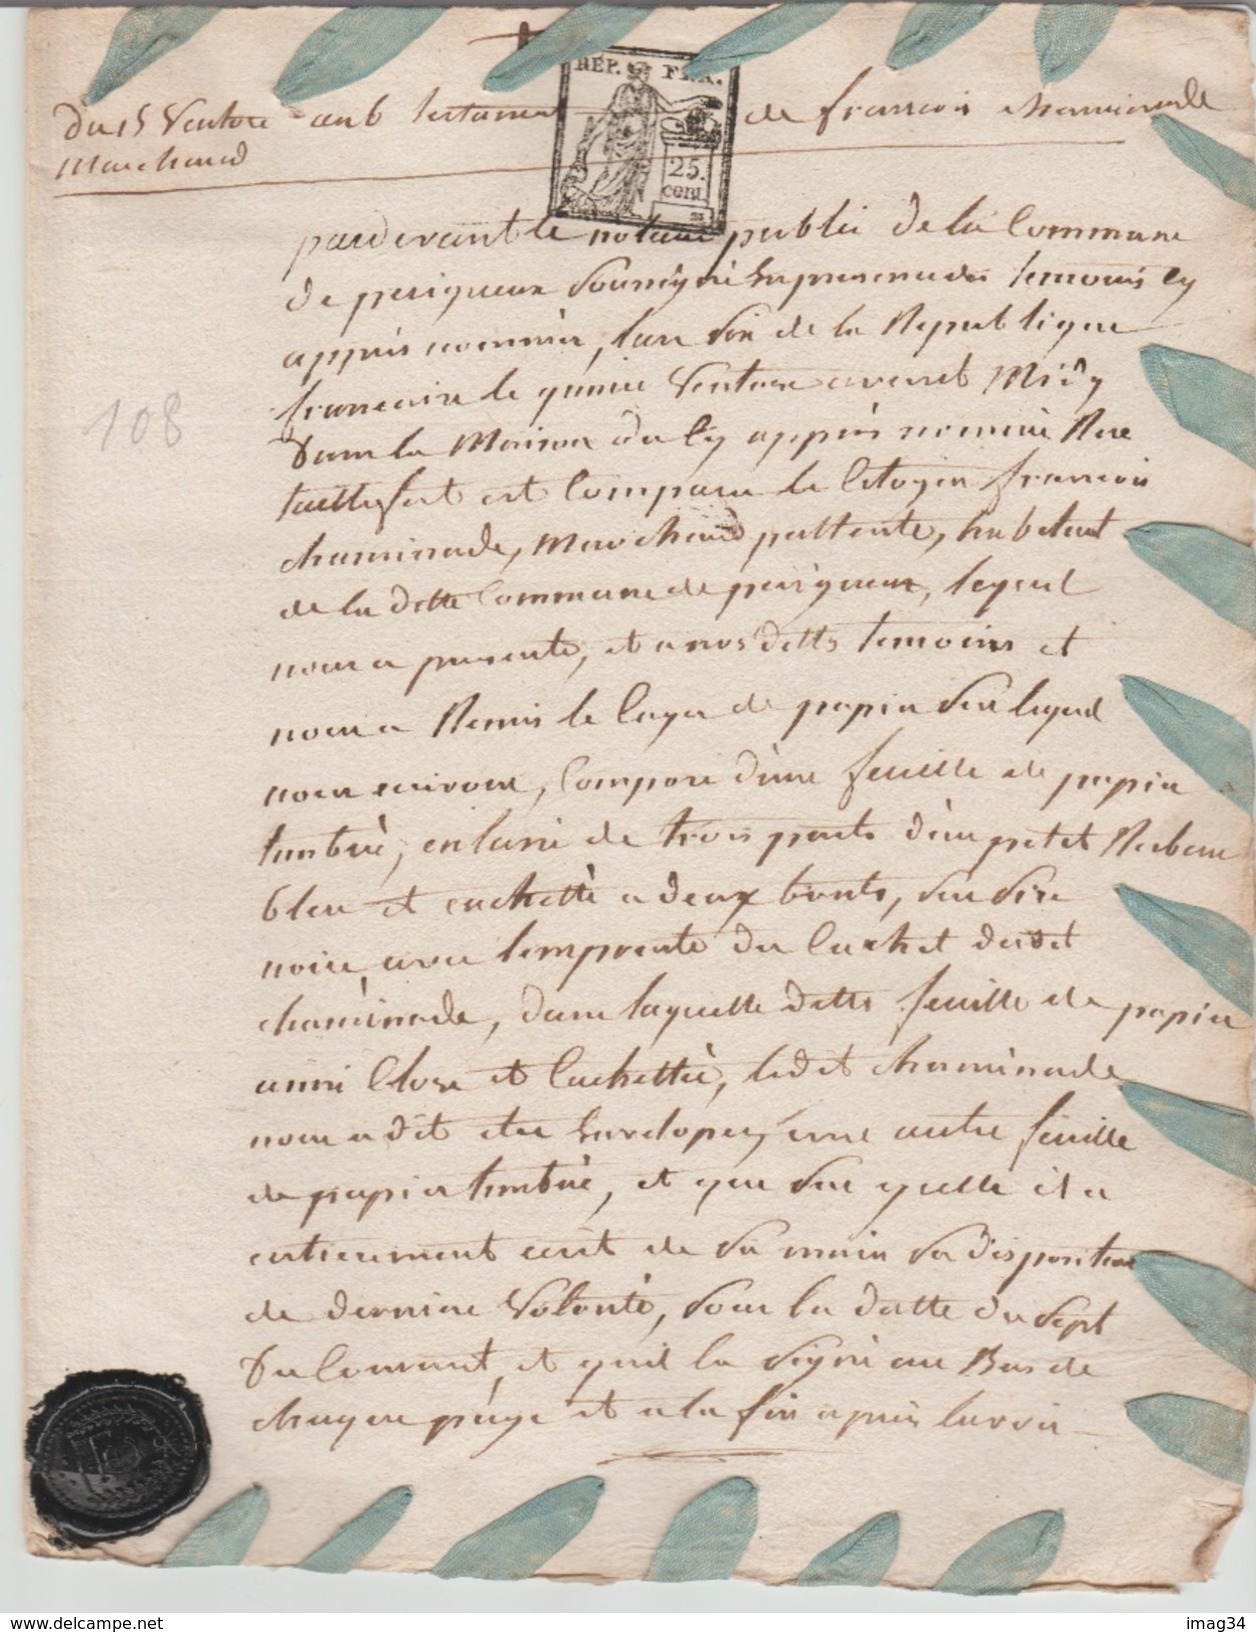 du 15 Ventose an 6 testament de francois chaminade
Marchand
REP. FRA.
25.
cent.
pardevant le notaire public de la Commune
de perigueux soussigné En presence des temoins cy
apprès nommés, l'an six de la Republique
francaise le quinze Ventose avant Midy
dans la Maison du Cy apprès nommé Rue
taillefert est Comparu le Citoyen francois
chaminade, Marchand pattenté, habitant
de la ditte Commune de perigueux, lequel
nous a presenté, et a nos ditts temoins et
nous a Remis le Cayer de papier sur lequel
nous ecrivons, Composé d'une feuille de papier
timbré, enlacé de trois parts d'un petit Ruban
bleu et cachetté a deux bouts, sur Cire
noire avec l'emprente du Cachet dudit
chaminade, dans laquelle ditte feuille de papier
ainsi Close et Cachettée, ledit chaminade
nous a dit etre Enveloppée, une autre feuille
de papier timbré, et que sur ycelle il a
entierement ecrit de sa main sa disposition
de derniere Volonté, sous la datte du sept
du Courant, et qu'il la signé au Bas de
chaque page et a la fin après lavoir
108
www.delcampe.net
imag34